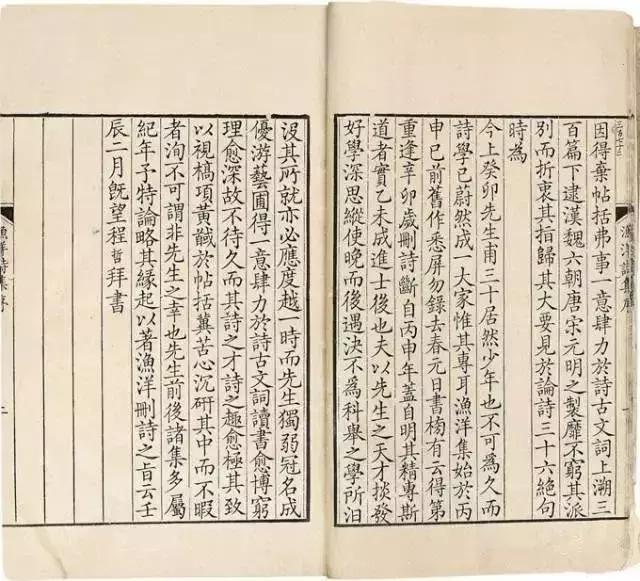 因得棄帖括弗事一意肆力於詩古文詞上溯三
百篇下逮漢魏六朝唐宋元明之製靡不窮其派
別而折衷其指歸其大要見於論詩三十六絕句
時為
今上癸卯先生甫三十居然少年也不可為久而
詩學已蔚然成一大家惟其專耳漁洋集始於丙
申已前舊作悉屏勿錄去春元日書榜有云得第
重逢辛卯歲刪詩斷自丙申年蓋自明其精專斯
道者實乙未成進士後也夫以先生之天才掞發
好學深思縱使晚而後遇決不為科舉之學所汨
沒其所就亦必應度越一時而先生獨弱冠名成
優游藝圃得一意肆力於詩古文詞讀書愈博窮
理愈深故不待久而其詩之才詩之趣愈極其致
以視槁項黃馘於帖括冀苦心沉研其中而不暇
者洵不可謂非先生之幸也先生前後諸集多屬
紀年予特論略其緣起以著漁洋刪詩之旨云壬
辰二月旣望程哲拜書
漁洋詩集序
二